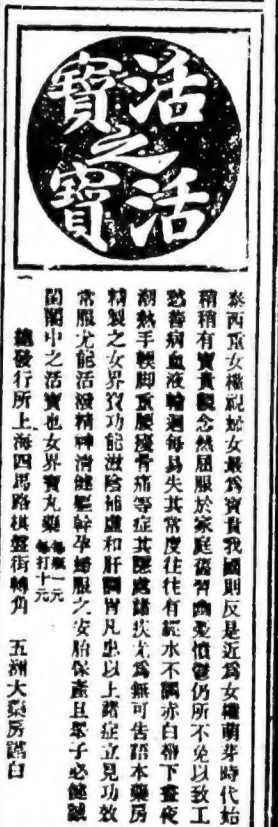 活寶之活寶
泰西重女權視婦女最爲寶貴我國則反是近爲女權萌芽時代始
稍稍有寶貴觀念然屈服於家庭舊習幽憂憤鬱仍所不免以致工
愁善病血液輪迴每易失其常度往往有經水不調赤白帶下晝夜
潮熱手輭脚重腰痠骨痛等症其隱處諸疾尤爲無可告語本藥房
精製之女界寶功能滋陰補虛和肝調胃凡患以上諸症立見功效
常服尤能活潑精神清健軀幹孕婦服之安胎保產且舉子必健誠
閨閣中之活寶也女界寶丸藥
每瓶一元
每打十元
總發行所上海四馬路棋盤街轉角 五洲大藥房謹白